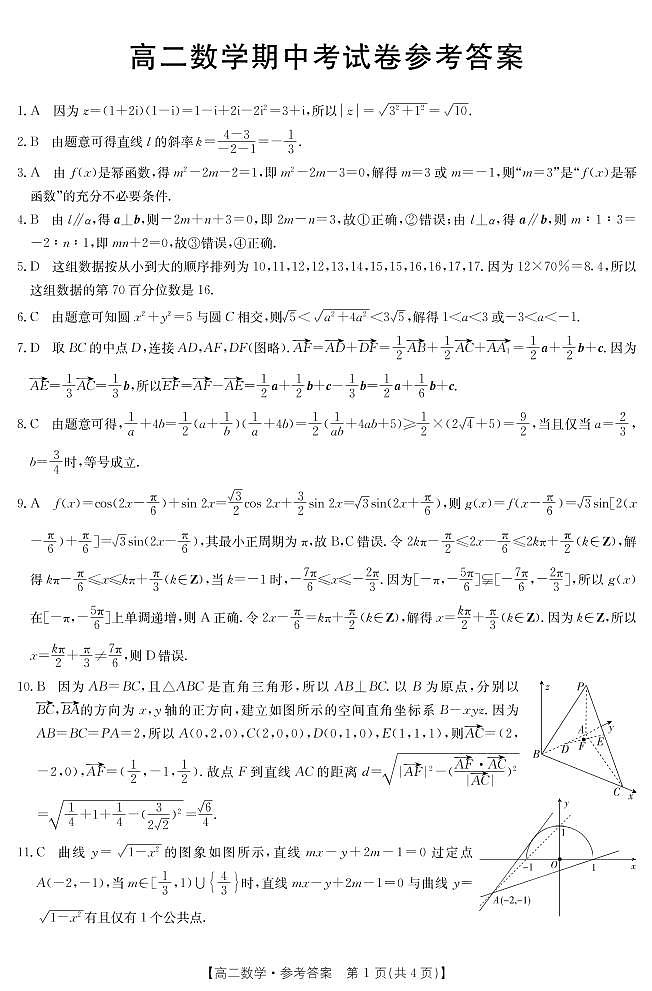 高二数学期中考试卷参考答案
1. A 因为 z=(1+2i)(1-i)=1-i+2i-2i²=3+i,所以|z|=√(3²+1²)=√10.
2. B 由题意可得直线 l 的斜率 k=(4-3)/(-2-1)=-1/3.
3. A 由 f(x)是幂函数,得 m²-2m-2=1,即 m²-2m-3=0,解得 m=3 或 m=-1,则“m=3”是“f(x)是幂
函数”的充分不必要条件.
4. B 由 l∥α,得 a⊥b,则-2m+n+3=0,即 2m-n=3,故①正确,②错误;由 l⊥α,得 a∥b,则 m∶1∶3=
-2∶n∶1,即 mn+2=0,故③错误,④正确.
5. D 这组数据按从小到大的顺序排列为 10,11,12,12,13,14,15,15,16,16,17,17. 因为 12×70%=8.4,所以
这组数据的第 70 百分位数是 16.
6. C 由题意可知圆 x²+y²=5 与圆 C 相交,则√5<√(a²+4a²)<3√5,解得 1<a<3 或-3<a<-1.
7. D 取 BC 的中点 D,连接 AD,AF,DF(图略). AF=AD+DF=1/2 AB+1/2 AC+AA₁=1/2 a+1/2 b+c. 因为
AE=1/3 AC=1/3 b,所以EF=AF-AE=1/2 a+1/2 b+c-1/3 b=1/2 a+1/6 b+c.
8. C 由题意可得,1/a+4b=1/2(a+1/b)(1/a+4b)=1/2(1/ab+4ab+5)≥1/2×(2√4+5)=9/2,当且仅当 a=2/3,
b=3/4时,等号成立.
9. A f(x)=cos(2x-π/6)+sin 2x=√3/2 cos 2x+3/2 sin 2x=√3sin(2x+π/6),则 g(x)=f(x-π/6)=√3sin[2(x
-π/6)+π/6]=√3sin(2x-π/6),其最小正周期为 π,故 B,C 错误. 令 2kπ-π/2≤2x-π/6≤2kπ+π/2(k∈Z),解
得 kπ-π/6≤x≤kπ+π/3(k∈Z),当 k=-1 时,-7π/6≤x≤-2π/3. 因为[-π,-5π/6]⫋[-7π/6,-2π/3],所以 g(x)
在[-π,-5π/6]上单调递增,则 A 正确. 令 2x-π/6=kπ+π/2(k∈Z),解得 x=kπ/2+π/3(k∈Z). 因为 k∈Z,所以
x=kπ/2+π/3≠7π/6,则 D 错误.
10. B 因为 AB=BC,且△ABC 是直角三角形,所以 AB⊥BC. 以 B 为原点,分别以
BC,BA的方向为 x,y 轴的正方向,建立如图所示的空间直角坐标系 B-xyz. 因为
AB=BC=PA=2,所以 A(0,2,0),C(2,0,0),D(0,1,0),E(1,1,1),则AC=(2,
-2,0),AF=(1/2,-1,1/2). 故点 F 到直线 AC 的距离 d=√(|AF|²-(AF·AC/|AC|)²)
=√(1/4+1+1/4-(3/2√2)²)=√6/4.
z
P
A
y
B
D
F
E
C
x
11. C 曲线 y=√(1-x²) 的图象如图所示,直线 mx-y+2m-1=0 过定点
A(-2,-1),当 m∈[1/3,1)∪{4/3}时,直线 mx-y+2m-1=0 与曲线 y=
√(1-x²)有且仅有 1 个公共点.
y
1
-1
O
1
x
A(-2,-1)
【高二数学·参考答案 第 1 页(共 4 页)】